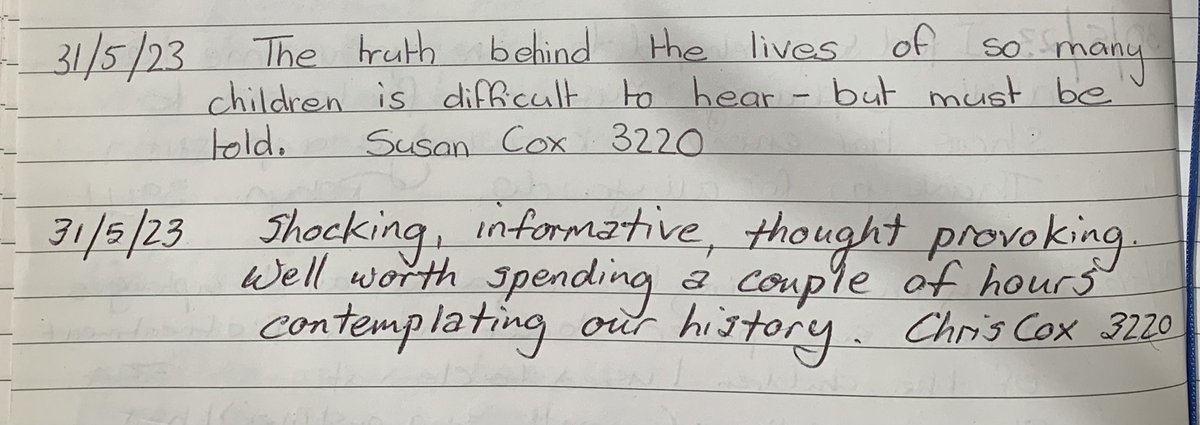 31/5/23 The truth behind the lives of so many
children is difficult to hear - but must be
told. Susan Cox 3220
31/5/23 Shocking, informative, thought provoking.
Well worth spending a couple of hours
contemplating our history. Chris Cox 3220